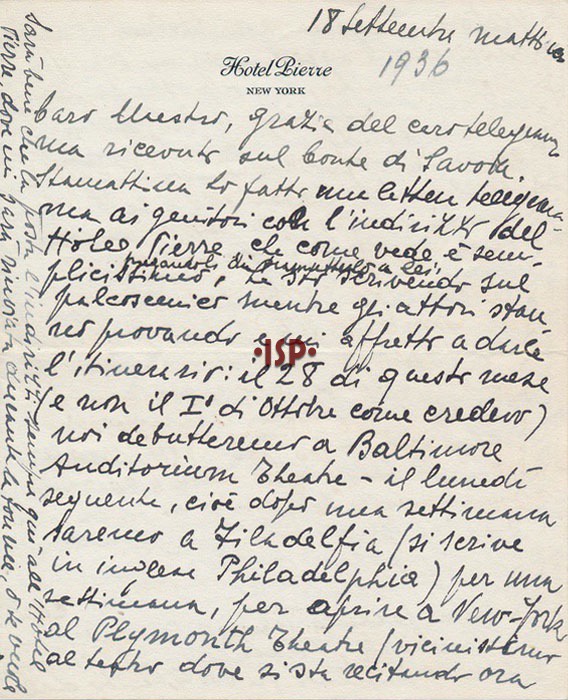 18 Settembre mattina
1936
Hotel Pierre
NEW YORK
Caro Maestro, grazie del caro telegram-
ma ricevuto sul Conte di Savoia.
Stamattina ho fatto una letter telegram-
ma ai genitori con l'indirizzo del
Hotel Pierre che come vede è sem-
plicissimo,
pregandoli di a lei.
Le sto scrivendo sul
palcoscenico mentre gli attori stan-
no provando e mi affretto a darle
l'itinerario: il 28 di questo mese
(e non il I° di Ottobre come credevo)
noi debutteremo a Baltimore
Auditorium Theatre - il lunedì
seguente, cioè dopo una settimana
saremo a Filadelfia (si scrive
in inglese Philadelphia) per una
settimana, per aprire a New-York
al Plymonth Theatre (vicinissimo
al teatro dove si sta recitando ora
Sarà bene che la posta l'indirizzi sempre qui all'Hotel
Pierre, dove mi sarà rinviata durante la tournée, o se vuole
·JSP·